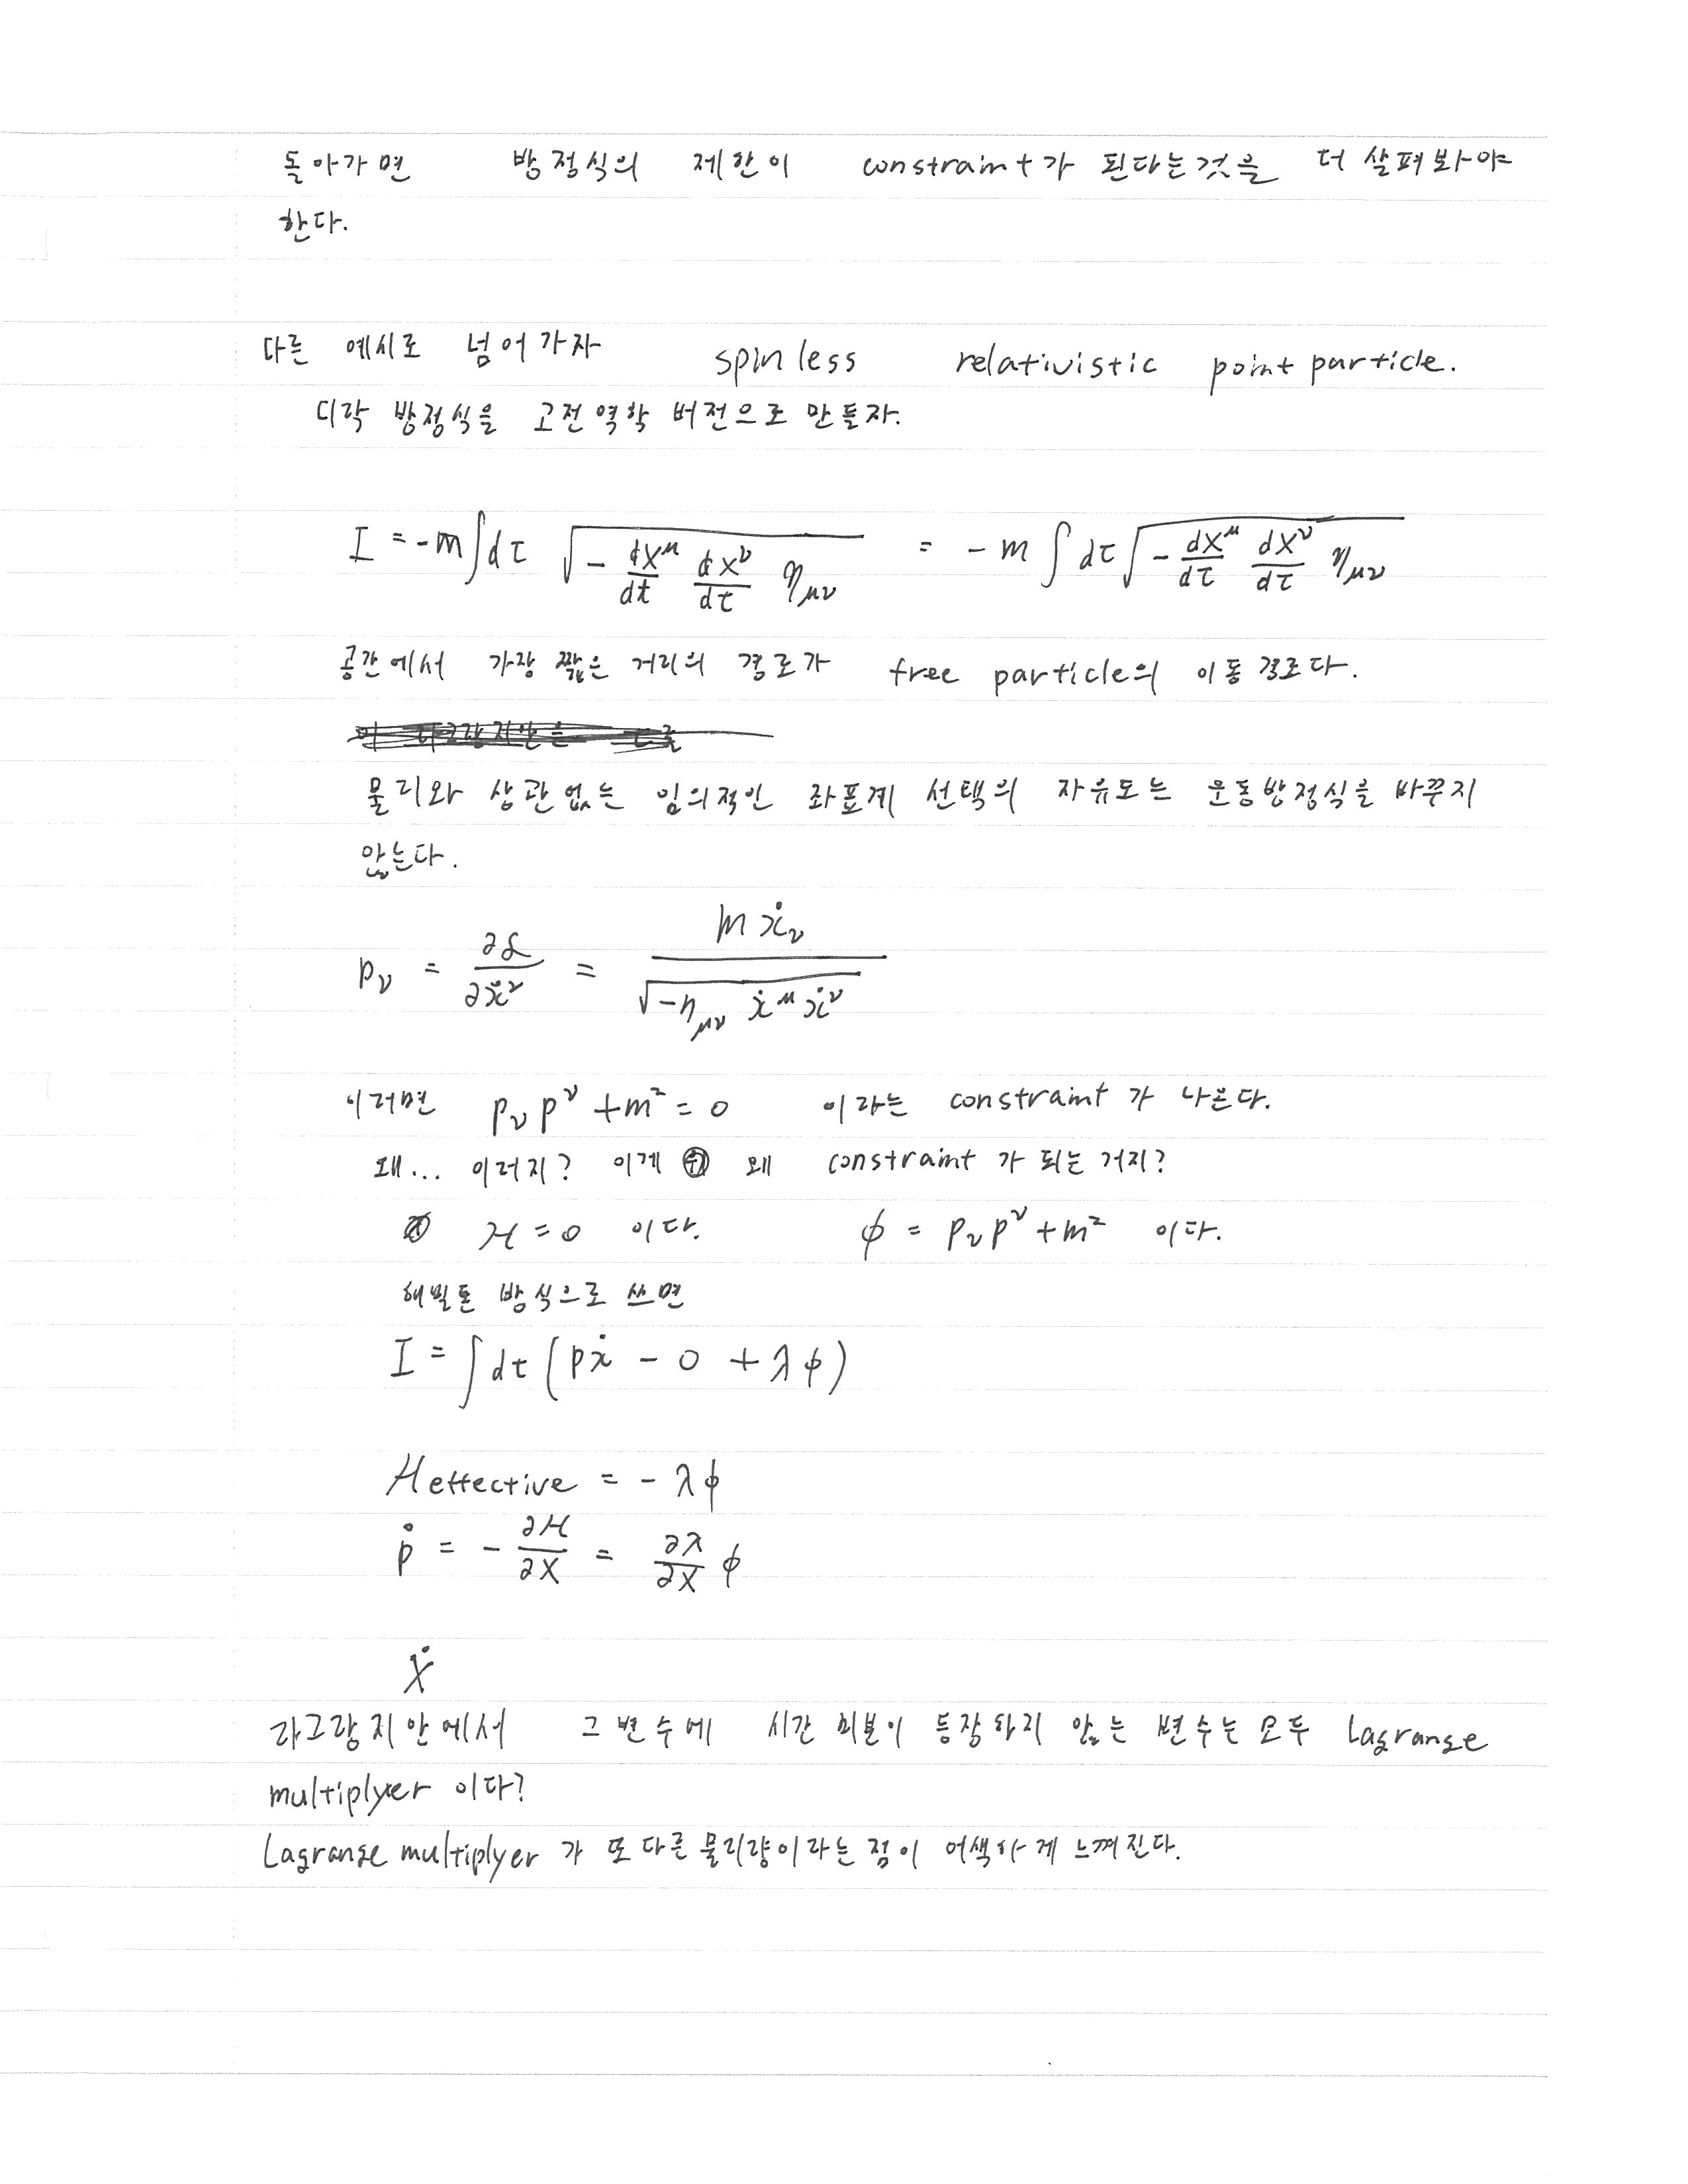 돌아가면 방정식의 제한이 constraint가 된다는것을 더 살펴봐야
한다.
다른 예시로 넘어가자 spinless relativistic point particle.
디락 방정식을 고전역학 버전으로 만들자.
I = -m∫dτ √(- dX^μ/dt dX^ν/dτ η_μν) = -m ∫ dτ √(- dX^μ/dτ dX^ν/dτ η_μν)
공간에서 가장 짧은 거리의 경로가 free particle의 이동 경로다.
물리와 상관 없는 임의적인 좌표계 선택의 자유도는 운동방정식을 바꾸지
않는다.
p_ν = ∂ℒ/∂ẋ^ν = m ẋ_ν / √(-η_μν ẋ^μ ẋ^ν)
이러면 p_ν p^ν + m² = 0 이라는 constraint 가 나온다.
왜... 이러지? 이게 왜 constraint 가 되는 거지?
ℋ = 0 이다. ϕ = p_ν p^ν + m² 이다.
해밀톤 방식으로 쓰면
I = ∫dτ (pẋ - 0 + λϕ)
ℋeffective = - λϕ
ṗ = - ∂ℋ/∂X = ∂λ/∂X ϕ
Ẋ
라그랑지안에서 그 변수에 시간 미분이 등장하지 않는 변수는 모두 Lagrange
multiplyer 이다?
Lagrange multiplyer 가 또 다른 물리량이라는 점이 어색하게 느껴진다.